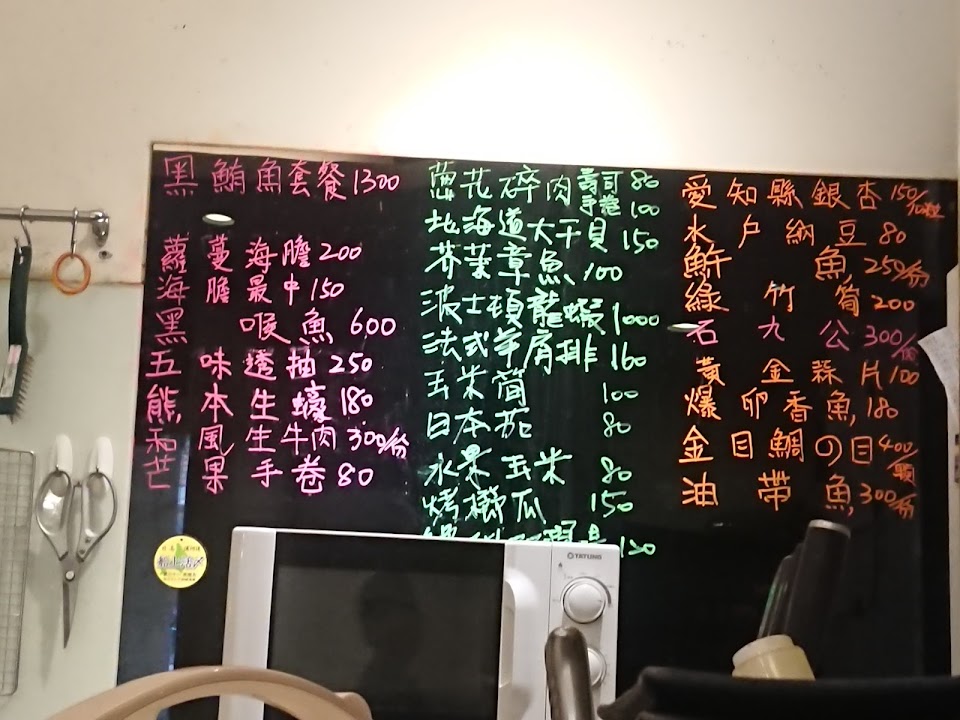 黑鮪魚套餐1300
蘿蔓海膽200
海膽最中150
黑喉魚600
五味透抽250
熊本生蠔180
和風生牛肉300/份
芒果手卷80
蔥花碎肉壽司80
手卷100
北海道大干貝150
芥茉章魚100
波士頓龍蝦1000
法式羊肩排160
玉米筒100
日本茄80
水果玉米80
烤櫛瓜150
120
愛知縣銀杏150/10粒
水戶納豆80
魚干魚250/份
綠竹筍200
石九公300/份
黃金蒜片100
爆卵香魚180
金目鯛の目400/顆
油帶魚300/份
TATUNG